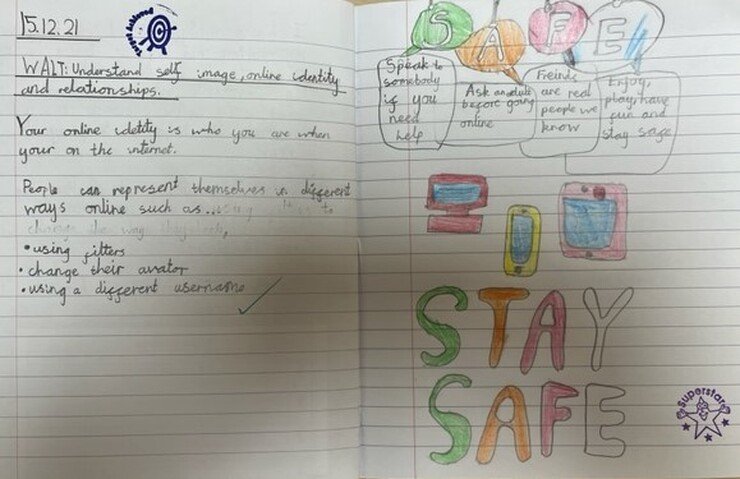 15.12.21
Target Achieved
WALT: Understand self image, online identity
and relationships.
Your online idetity is who you are when
your on the internet.
People can represent themselves in different
ways online such as...
• using filters
• change their avator
• using a different username
S A F E
Speak to
somebody
if you
need
help
Ask an adult
before going
online
Freinds
are real
people we
know
Enjoy,
play, have
fun and
stay safe
STAY
SAFE
Superstar